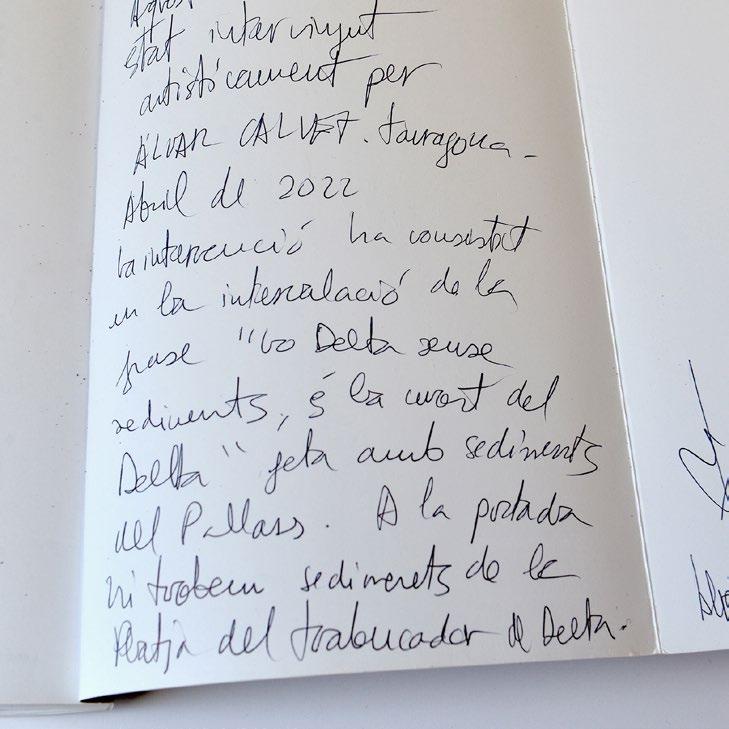 estat intervinyut
artísticament per
ÁLVAR CALVET. Tarragona -
Abril de 2022
La intervenció ha consistit
en la intercalació de la
frase "Lo Delta sense
sediments, és la mort del
Delta" feta amb sediments
del Pallars. A la portada
hi trobem sediments de la
Platja del trabucador de Delta.